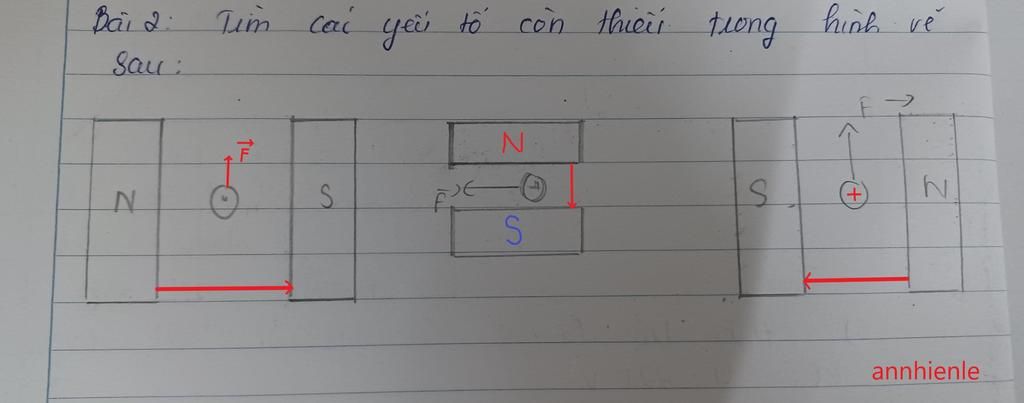 Bài 2: Tìm các yếu tố còn thiếu trong hình vẽ
sau:
F
N
S
N
F
S
F
S
+
N
annhienle